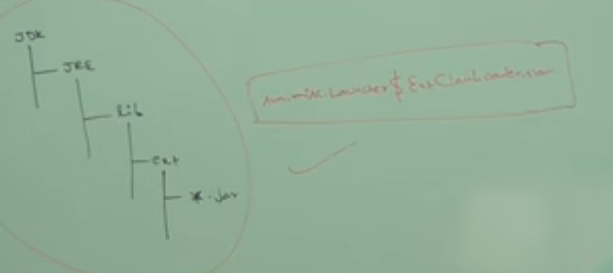 JDK
JRE
Lib
ext
*.jar
sun.misc.Launcher$ExtClassLoader.class